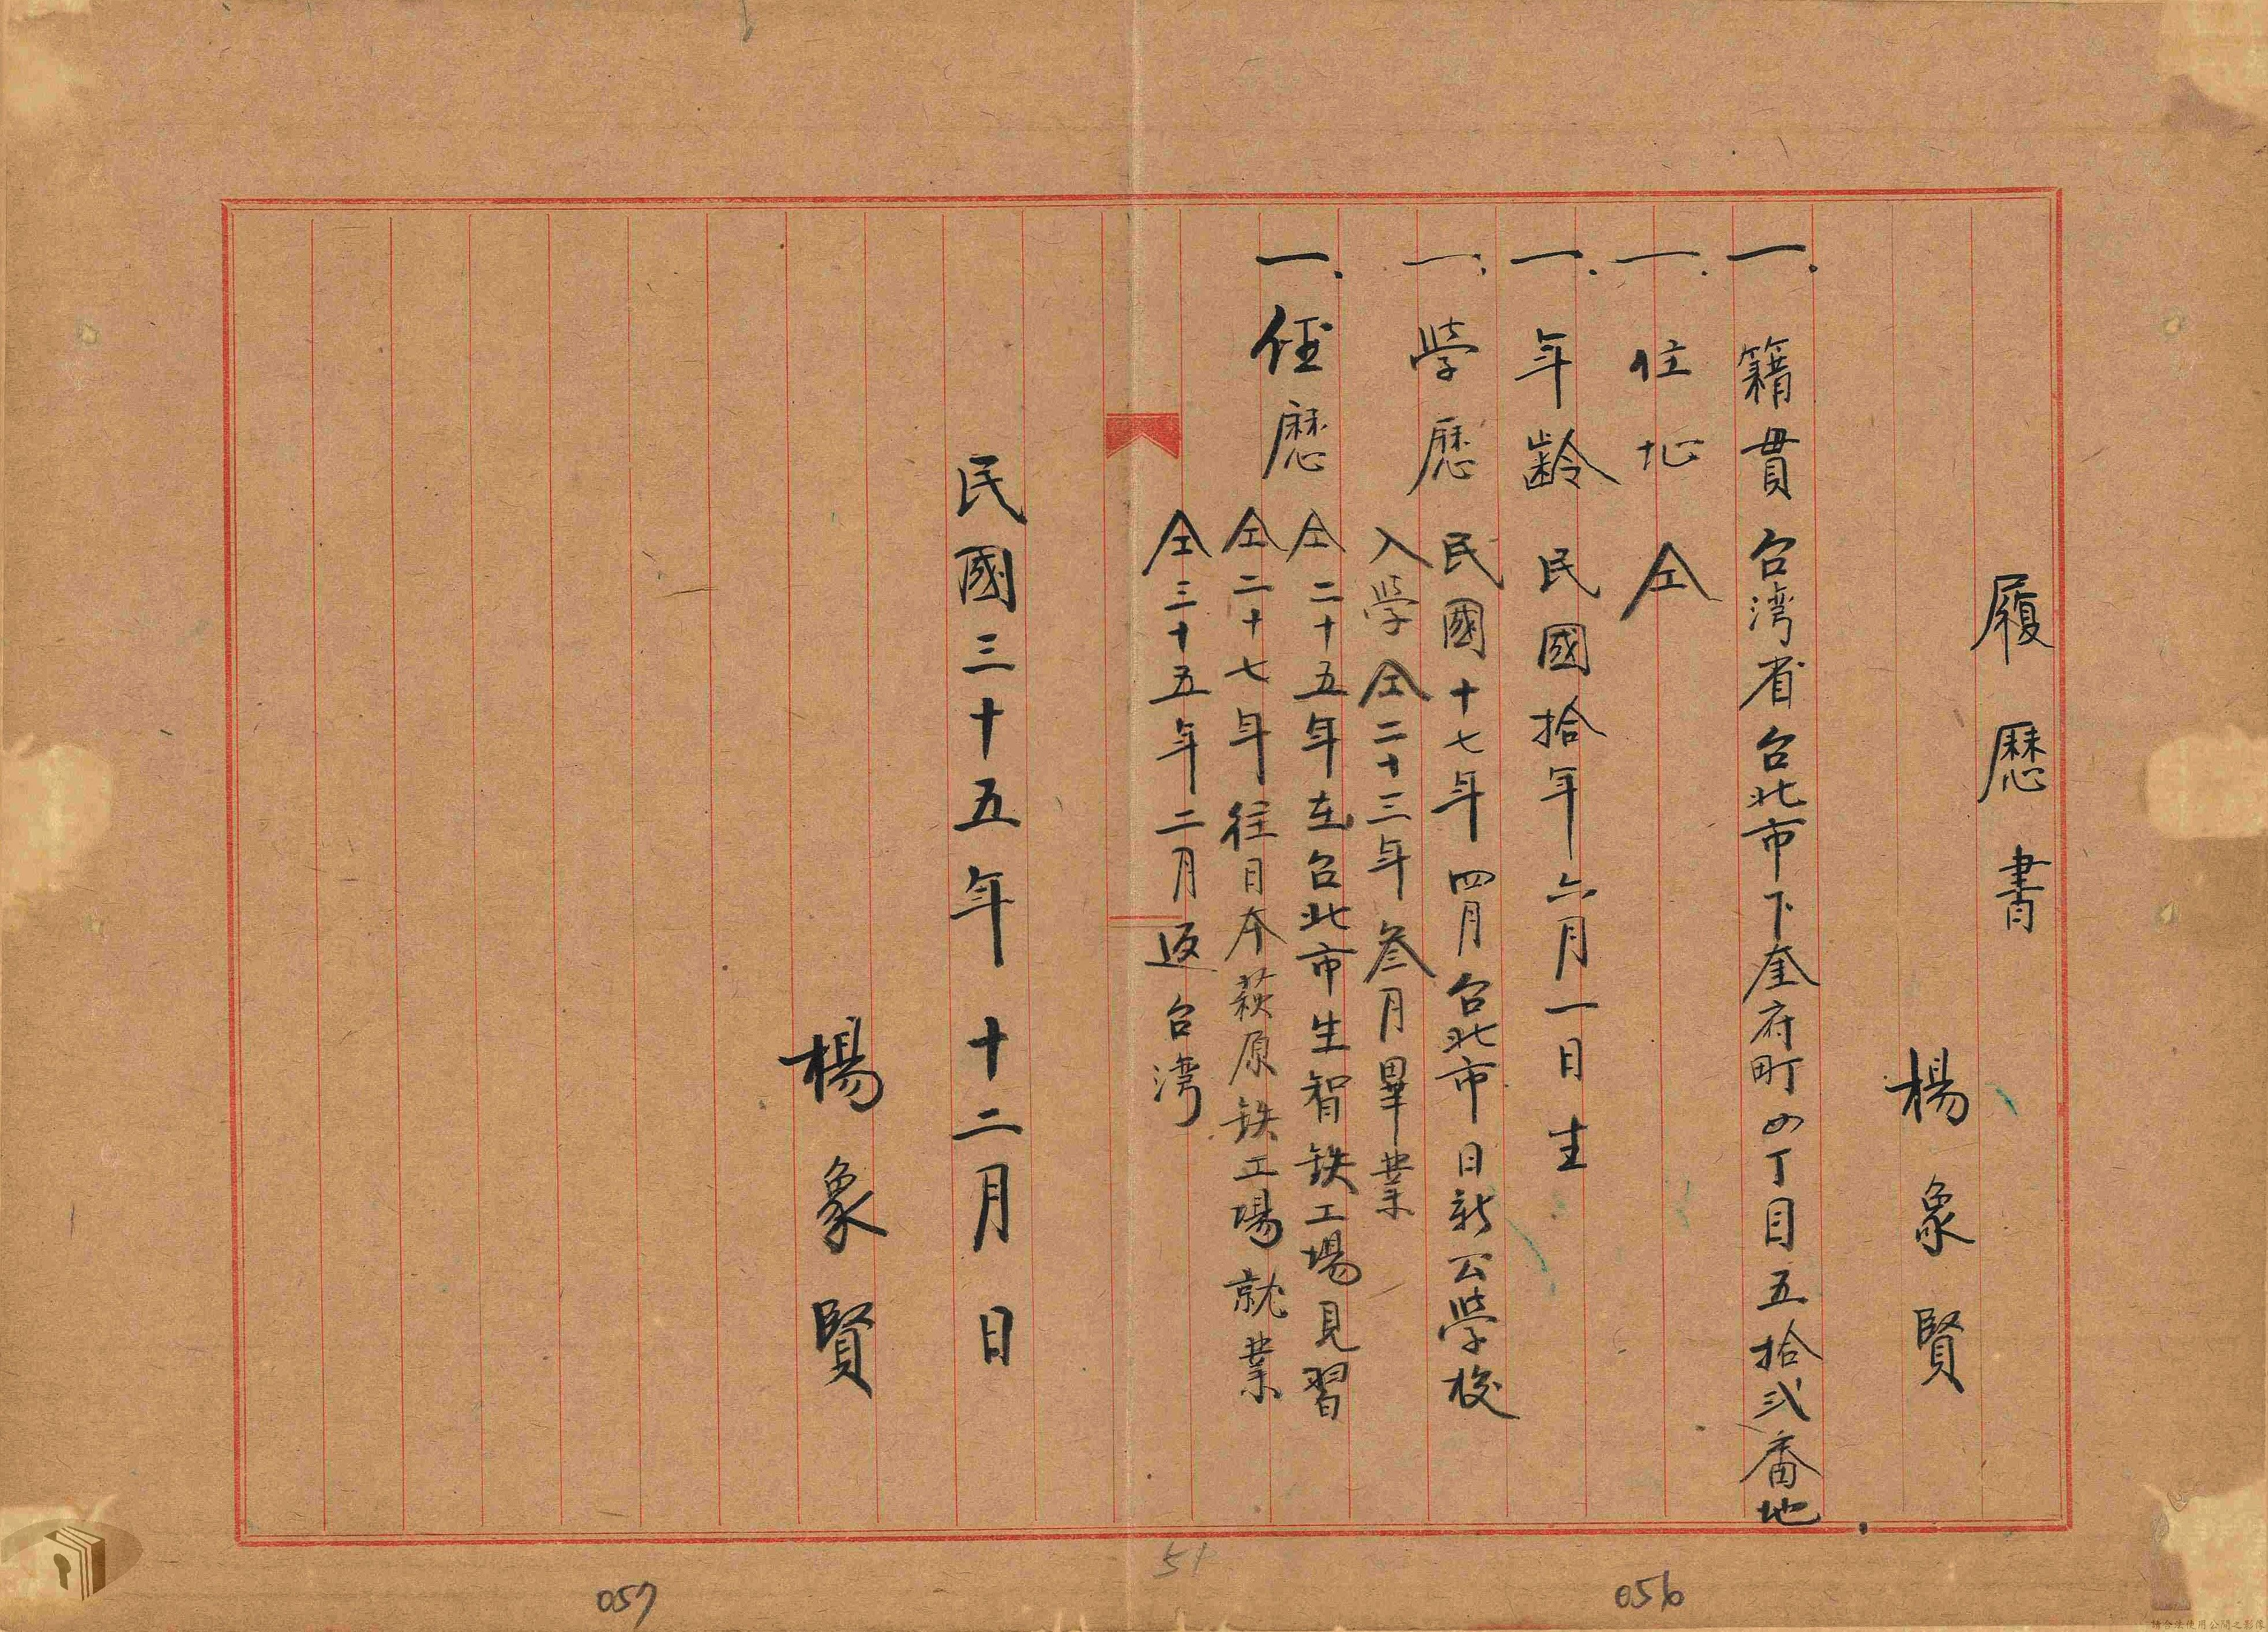 履歴書
楊象賢
一.籍貫 台湾省台北市下奎府町四丁目五拾弐番地
一.住地 仝
一.年齢 民國拾年六月一日生
一.學歴 民國十七年四月台北市日新公學校
入學仝二十三年叁月畢業
一.径歴 仝二十五年在台北市生智鉄工場見習
仝二十七年往日本萩原鉄工場就業
仝三十五年二月返台湾
民國三十五年十二月 日
楊象賢
51
056
057
請合法使用公開之影像